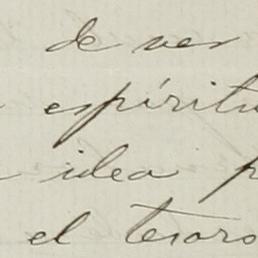 de ver
espíritu
idea p
el tesoro